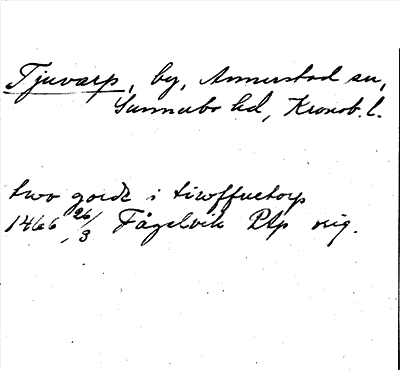 Tjuvarp, by, Annerstad sn,
Sunnerbo hd, Kronob. l.
two gorde i tiwffuetorp
1466 26/3 Fågelvik Ptp orig.